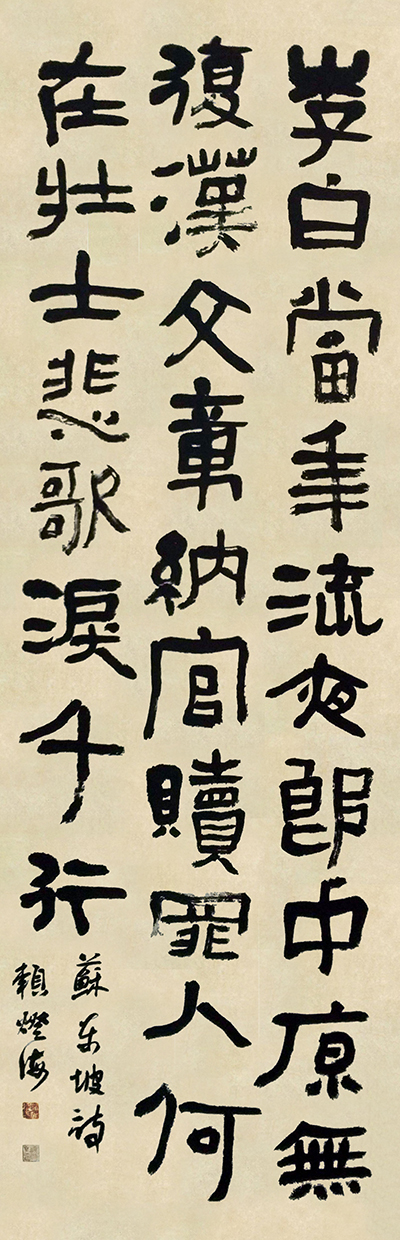 李白當年流夜郎中原無
復漢文章納官贖罪人何
在壯士悲歌淚千行
蘇東坡詩
賴燈海